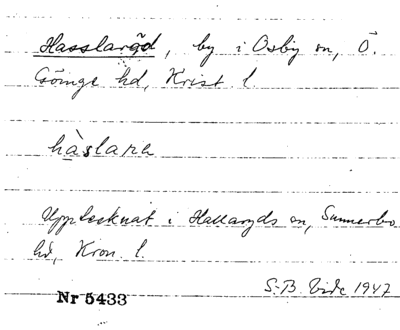 Hasslaröd, by i Osby sn, Ö.
Göinge hd, Krist. l.
hàslarn
Upptecknat i Hallaryds sn, Sunnerbo
hd, Kron. l.
S.-B. Vide 1947
Nr 5433